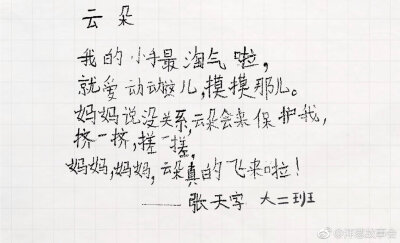 云朵
我的小手最淘气啦，
就爱动动这儿，摸摸那儿。
妈妈说没关系，云朵会来保护我，
挤一挤，搓一搓，
妈妈，妈妈，云朵真的飞来啦！
——张天宇 大二班